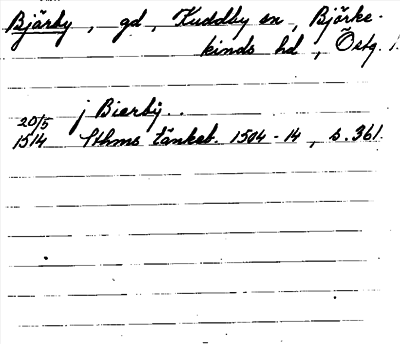 Bjärby, gd, Kuddby sn, Björke-
kinds hd, Östg.
j Bierby..
20/5
1514 Sthms tänkeb. 1504-14, s. 361.